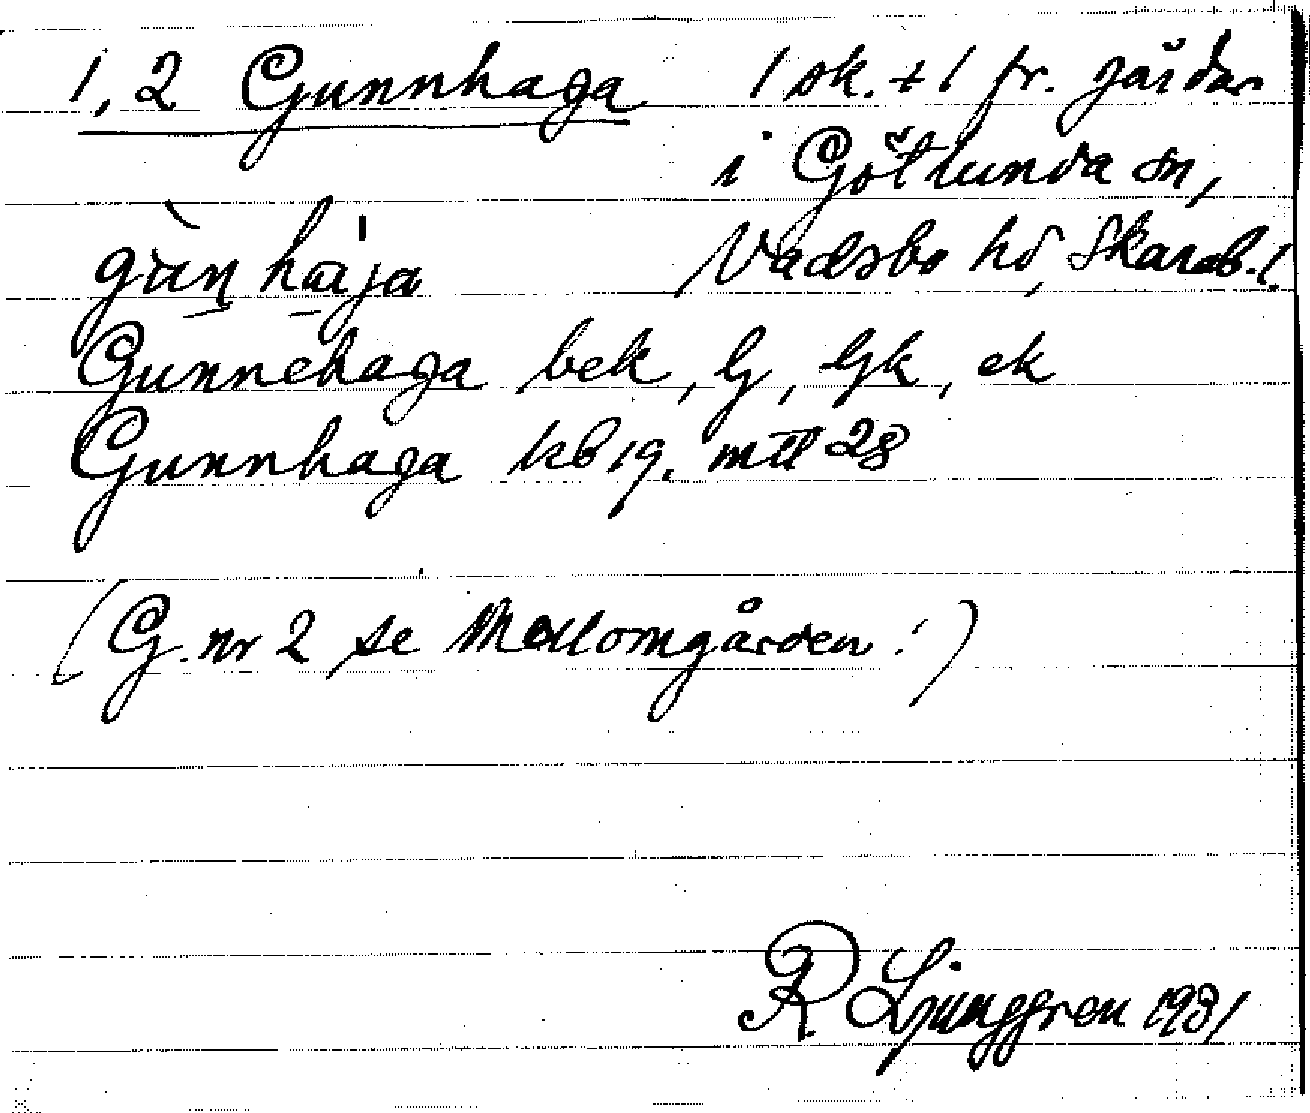 1, 2 Gunnhaga 1 sk. + 1 fr. gårdar
i Götlunda sn,
gùn hája Vadsbo hd, Skarab. l.
Gunnehaga bek, G, Gk, ek
Gunnhaga kb 19. mtl 28
(G. nr 2 se Mellomgården!)
R Ljunggren 1931